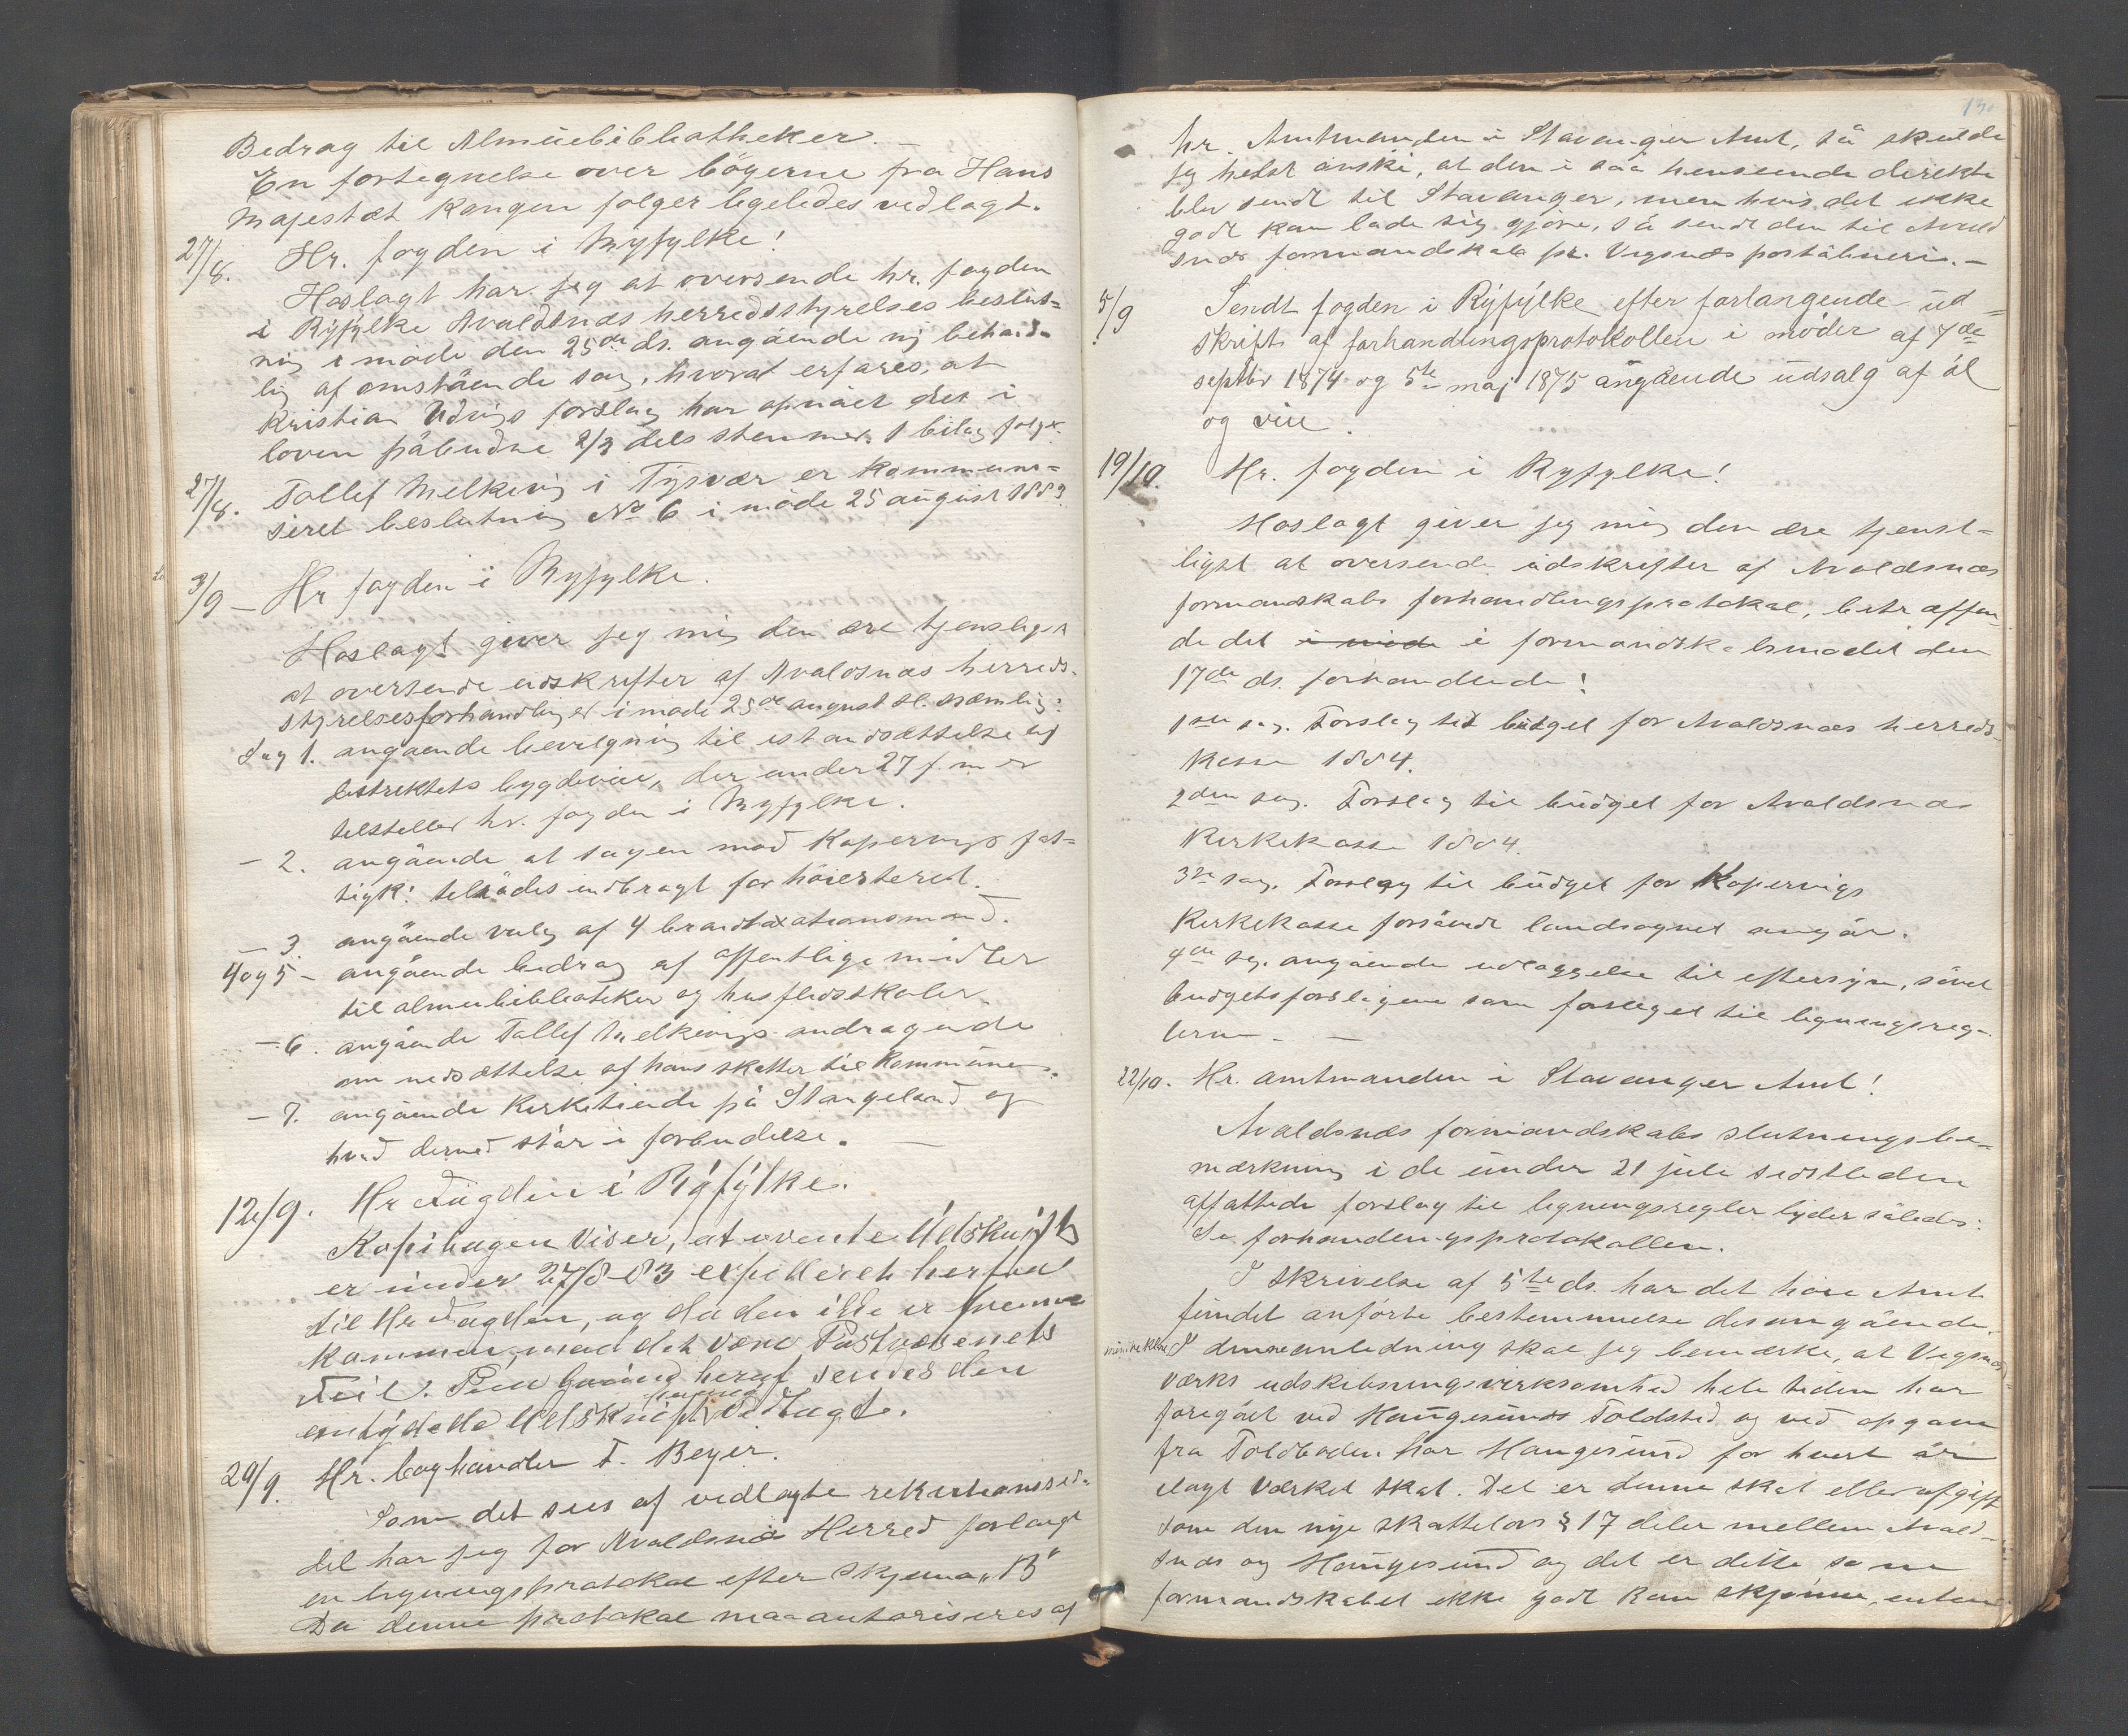 Bedrag til Almüebibliotheker. –
En fortegnelse over bögerne fra Hans
Majestæt Kongen følger ligeledes vedlagt.
27/8. Hr. fogden i Ryfylke!
Hoslagt har jeg at oversende hr. fogden
i Ryfylke Avaldsnæs herredsstyrelses beslut=
ning i möde den 25de ds. angående ny behand-
lig af omstående sag, hvoraf erfares, at
Kristian Udvigs forslag har opnået det i
loven påbudne 2/3 dels stemmer. 1 bilag følger.
27/8. Tollef Melkevig i Tysvær er kommuni=
seret beslutning No 6 i möde 25 august 1883
3/9 – Hr fogden i Ryfylke.
Hoslagt giver jeg mig den ære tjensligst
at oversende udskrifter af Avaldsnæs herreds-
styrelsesforhandlinger i møde 25de august sl. næmlig:
Sag 1. angaende bevilgning til istandsættelse af
distriktets bygdeveie, der under 27 f. m er
tilstillet hr. fogden i Ryfylke.
– 2. angående at sagen mod Kopervigs fat=
tigk: tilrådes indbragt for höiesteret.
– 3. angående valg af 4 brandtaxationsmænd.
4og5 – angående bedrag af offentlige midler
til almuebibliotheker og husflidsskoler.
– 6. angående Tollef Melkevigs andragende
om nedsættelse af hans skatter til Kommünen.
– 7. angående Kirketiende på Stangeland og
hvad dermed står i forbindelse. –
12/9. Hr Fogden i Ryfylke.
Kopibogen viser, at ævnte Udskrift
er under 27/8-83 expederet herfra
til Hr Fogden, og da den ikke er fremme
kommen, maa det være Postvæsenets
Feil. Paa Grund heraf sendes den
omtydede Udskrift vedlagte.
29/9. Hr. boghandler F. Beyer.
Som det sees af vedlagte rekvisitionssed-
del har jeg for Avaldsnæs Herred forlangt
en ligningsprotokol efter Skjema „B"
Da denne protokol maa autoriseres af
hr. Amtmanden i Stavanger Amt, så skulde
jeg helst önske, at den i saa henseende direkte
blev sendt til Stavanger, men hvis det ikke
godt kan lade sig gjøre, så sendt den til Avald
snæs formandskab pr. Vigsnæs poståbneri. –
5/9 Sendt fogden i Ryfylke efter forlangende ud=
skrift af forhandlingsprotokollen i möder af 7de
septbr 1874 og 5te maj 1875 angående udsalg af öl
og vin.
19/10. Hr. fogden i Ryfylke!
Hoslagt giver jeg mig den ære tjenst=
ligst at oversende udskrifter af Avaldsnæs
formandskabs forhandlingsprotokol, betræffen-
de det i möde i formandskabsmødet den
17de ds. forhandlede!
1ste sag. Forslag til budget for Avaldsnæs herreds-
kasse 1884.
2den sag. Forslag til büdget for Avaldsnæs
Kirkekasse 1884.
3die sag. Forslag til büdget for Kopervigs
Kirkekasse forsåvidt landsognet angår.
4de sag. angående udlæggelse til eftersyn, såvel
budgetsforslagene som forslaget til ligningsreg-
lerne – –
22/10. Hr. amtmanden i Stavanger Amt!
Avaldsnæs formandskabs slutningsbe-
mærkning i de ünder 21 juli sidstleden
affattede forslag til ligningsregler lyder således:
Se forhandlingsprotokollen.
I skrivelse af 5te ds. har det höie Amt
fündet anförte bestemmelse desangående.
I denne anledning skal jeg bemærke, at Vigsnæs
værks udskibningsvirksomhed hele tiden har
foregået ved Haugesunds Toldsted og ved opgave
fra Toldboden har Haugesund for hvert år
ilagt Værket skat. Det er denne skat eller afgift
som den nye skattelovs § 17 deler mellem Avald-
snæs og Haugesund og det er dette som
formandskabet ikke godt kan skjönne, enten